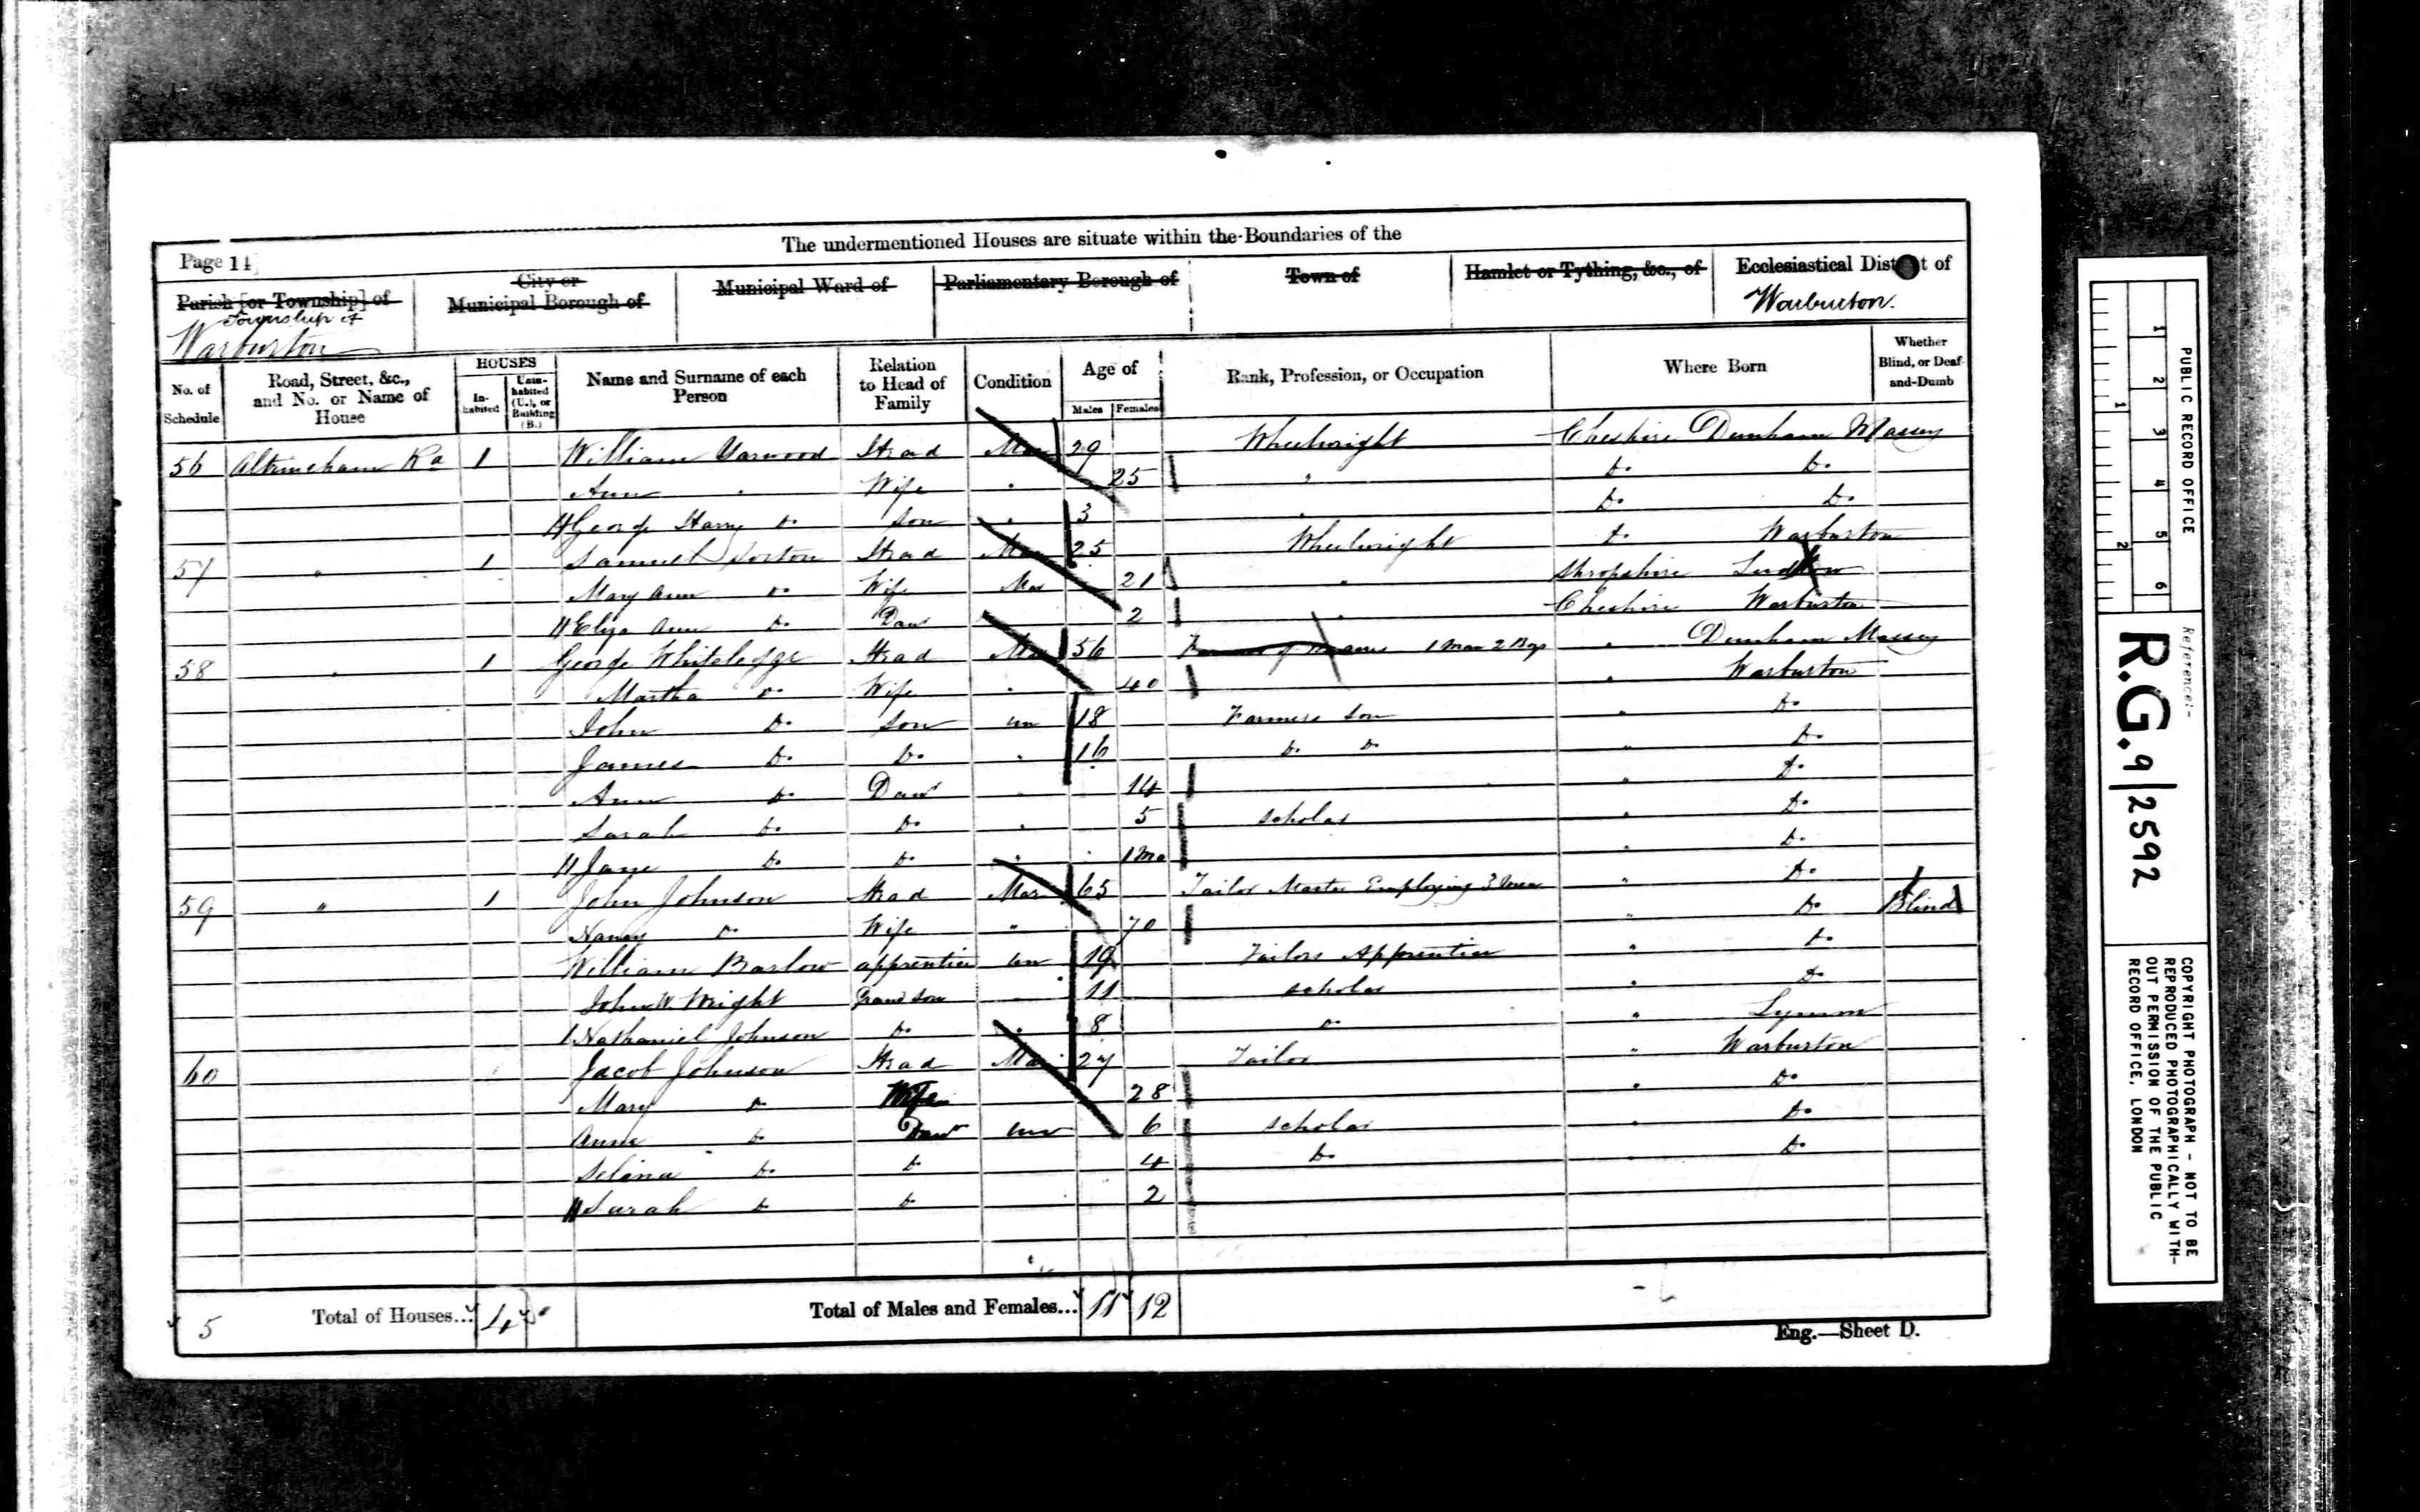 The undermentioned Houses are situate within the Boundaries of the
Page 14
Parish [or Township] of
Township of
Warburton
City or
Municipal Borough of
Municipal Ward of
Parliamentary Borough of
Town of
Hamlet or Tything, &c., of
Ecclesiastical District of
Warburton.
No. of Schedule
Road, Street, &c., and No. or Name of House
HOUSES
In-habited
Unin-habited (U.), or Building (B.)
Name and Surname of each Person
Relation to Head of Family
Condition
Age of
Males
Females
Rank, Profession, or Occupation
Where Born
Whether Blind, or Deaf-and-Dumb
56 Altrincham Rd 1 William Yarwood Head Mar 29 Wheelwright Cheshire Dunham Massey
Ann " Wife " 25 " Do Do
George Harry Do son " 3 " Do Do
57 " 1 Samuel Head Mar 25 Wheelwright Do Warburton
Mary Ann Do Wife Mar 21 " Shropshire Ludlow
Eliza Ann Do Daur 2 " Cheshire Warburton
58 " 1 George Whitelegge Head Mar 56 Farmer of acres 1 Man 2 Boys " Dunham Massey
Martha Do Wife " 40 " Warburton
John Do son un 18 Farmers son " Do
James Do Do " 16 Do Do " Do
Ann Do Daur " 14 " Do
Sarah Do Do " 5 scholar " Do
Jane Do Do " 1 mo " Do
59 " 1 John Johnson Head Mar 65 Tailor Master Employing 3 Men " Do
Nancy Do Wife " 70 " Do Blind
William Barlow apprentice un 19 Tailors Apprentice " Do
John W. Wright Grandson " 11 scholar " Do
Nathaniel Johnson Do " 8 Do " Lymm
60 Jacob Johnson Head Mar 27 Tailor " Warburton
Mary Do Wife 28 " Do
Anne Do Daur un 6 scholar " Do
Selina Do Do 4 Do " Do
Sarah Do Do 2
5 Total of Houses... 4
Total of Males and Females... 11 12
Eng.—Sheet D.
PUBLIC RECORD OFFICE
1 2 3 4 5 6
1 2
Reference:-
R.G. 9/2592
COPYRIGHT PHOTOGRAPH - NOT TO BE
REPRODUCED PHOTOGRAPHICALLY WITH-
OUT PERMISSION OF THE PUBLIC
RECORD OFFICE, LONDON